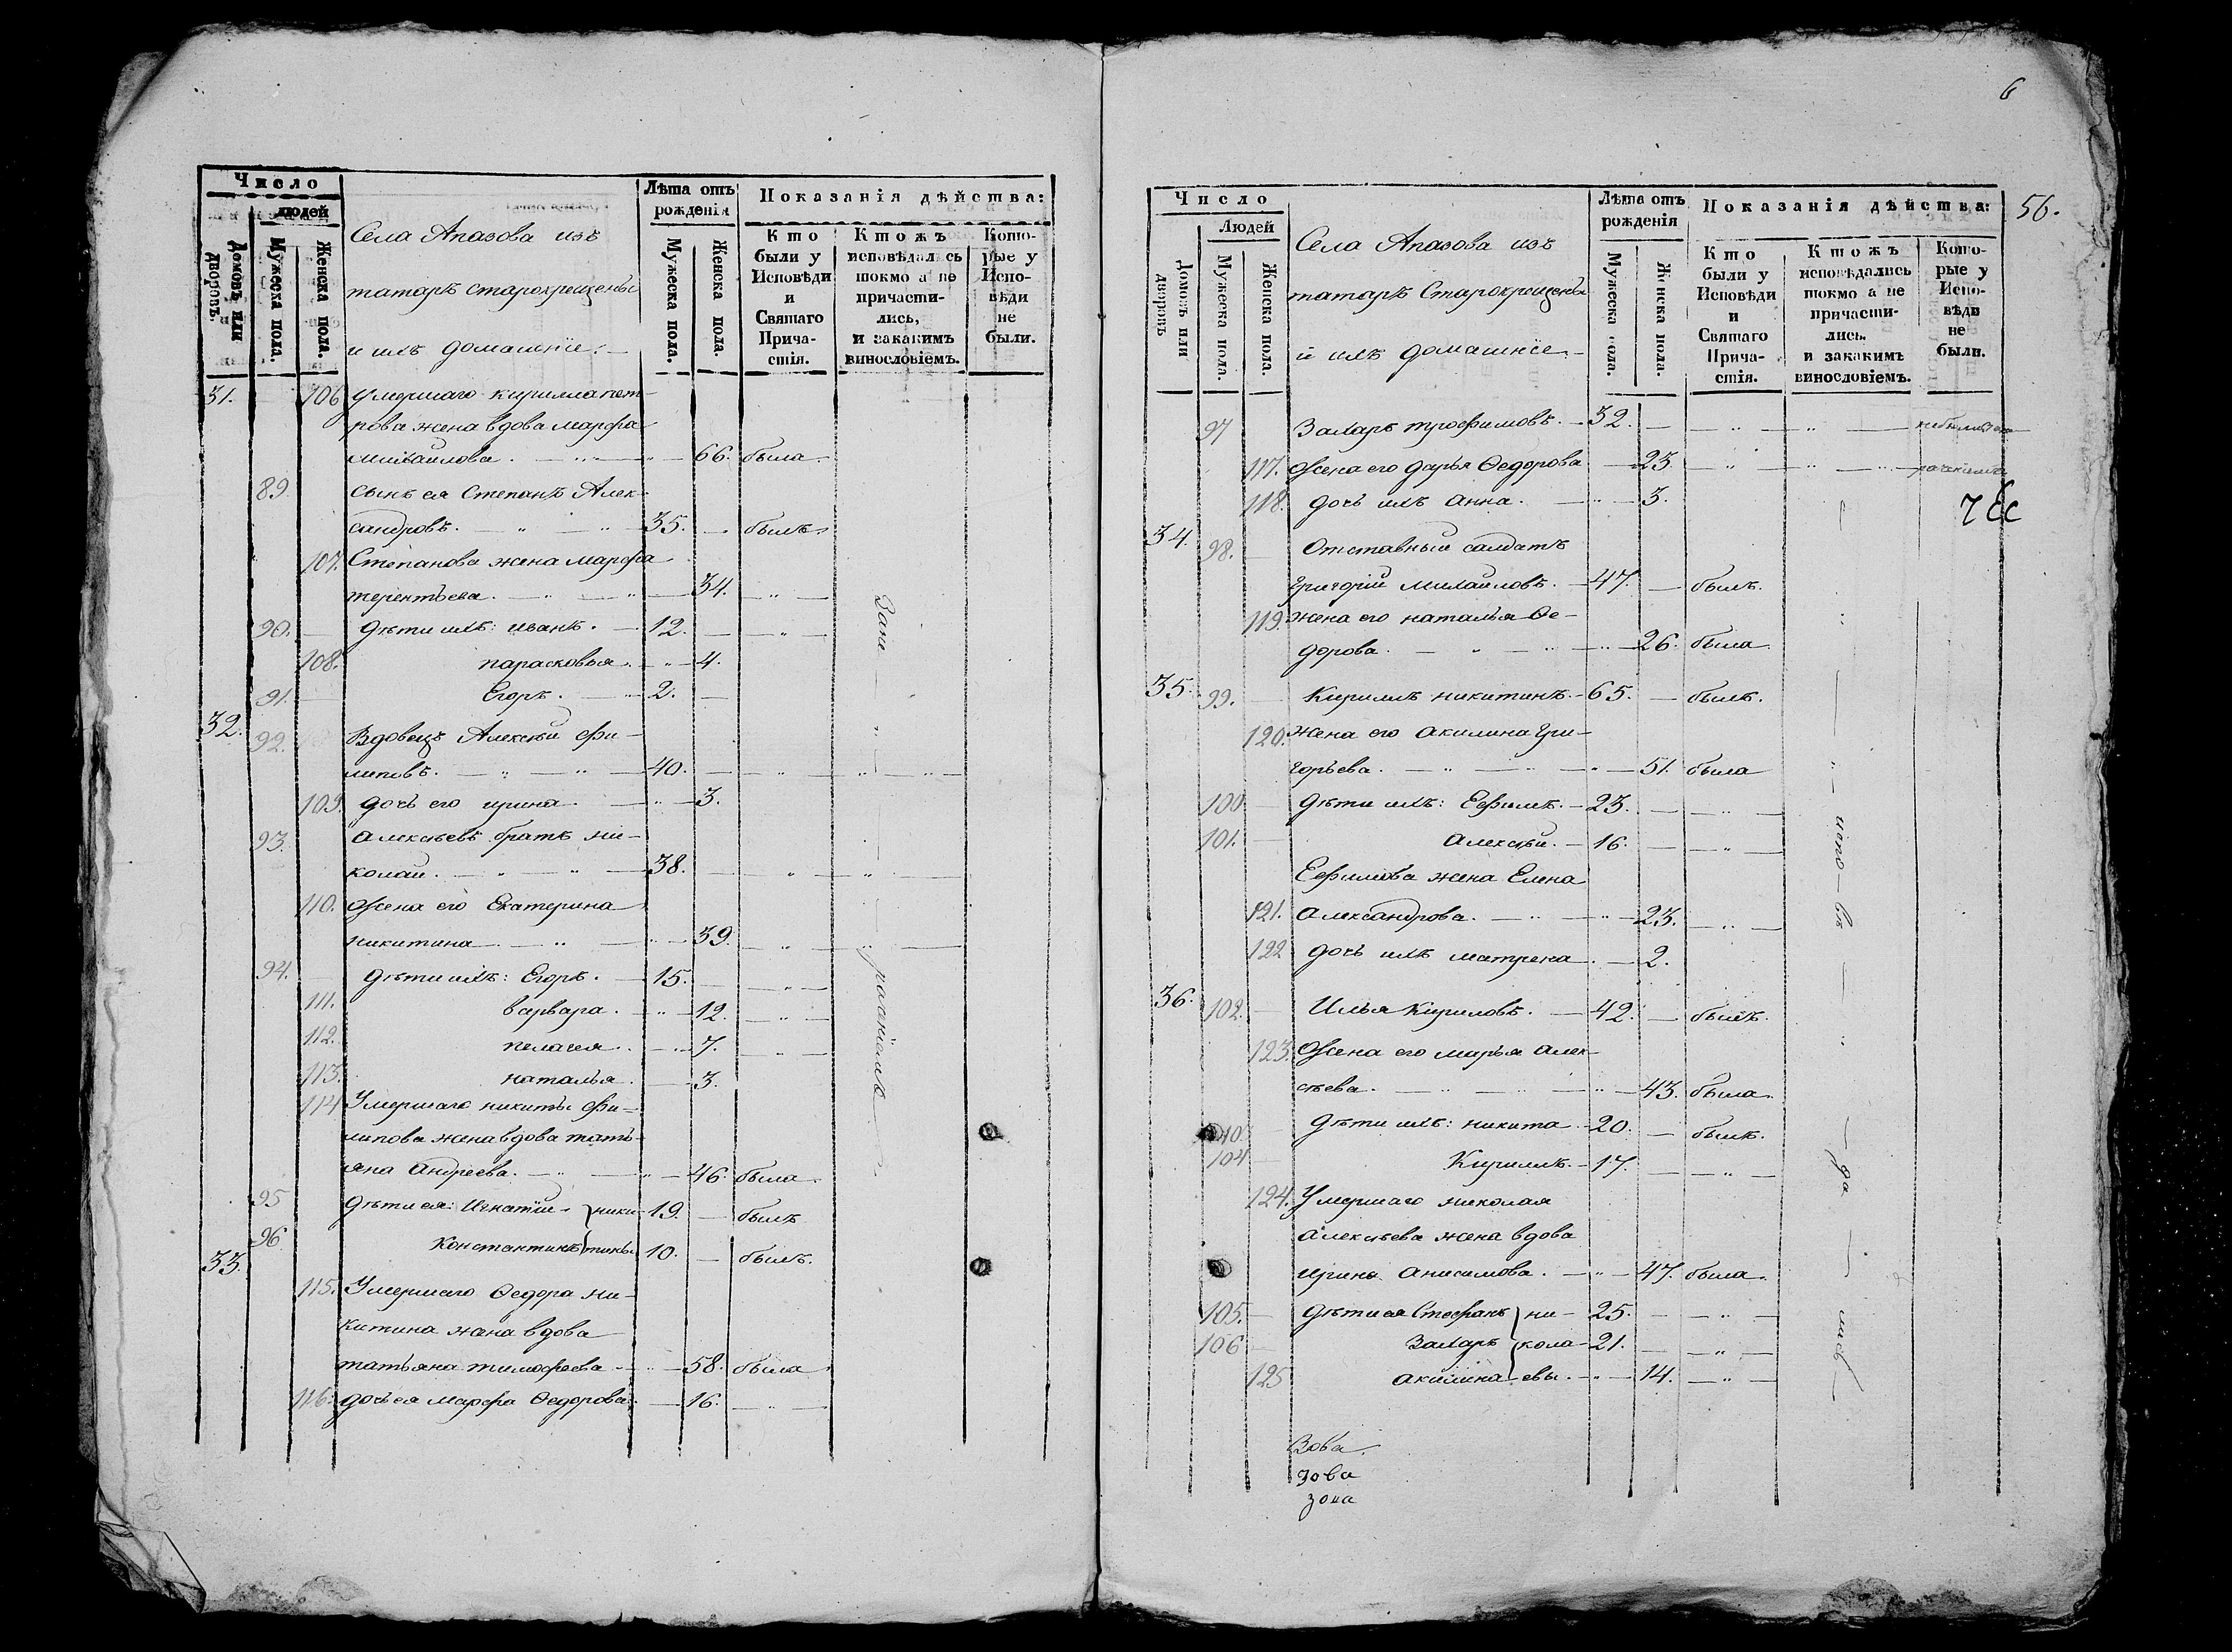 Число
людей
Домовъ или дворовъ.
Мужеска пола.
Женска пола.
Села Апазова изъ
татаръ старокрещены
и ихъ домашніе.
Лѣта отъ рожденія
Мужеска пола.
Женска пола.
Показанія дѣйства:
Кто были у Исповѣди и Святаго Причастія.
Ктожъ исповѣдались токмо а не причастились, и закакимъ винословіемъ.
Которые у Исповѣди не были.
31. 106 умершаго кирилла пет-
рова жена вдова марфа
михайлова. 66. была.
89. сынъ ея Степанъ Алек-
сандровъ. 35. былъ.
107. Степанова жена марфа
терентьева. 34. „
90. дѣти ихъ: иванъ. 12. „
108. парасковья. 4.
91. Егоръ. 2.
32. 92. Вдовецъ Алексѣй фи-
липовъ. 40. „ „
109. дочь его ирина. 3.
93. алексѣевъ братъ ни-
колай. 38. „ „
110. Жена его Екатерина
никитина. 39. „ „
94. дѣти ихъ: Егоръ. 15. „
111. варвара. 12. „
112. пелагея. 7. „
113. наталья. 3.
114 Умершаго никиты фи-
липова жена вдова тать-
яна Андреева. 46. была.
95 дѣти ея: Игнатій } ники- 19. былъ
96 Константинъ } тины 10. былъ.
33.
115. Умершаго Ѳедора ни-
китина жена вдова
татьяна тимофеева 58. была
116. дочь ея марфа Ѳедорова. 16. „
6
56.
Число
Людей
Домовъ или дворовъ
Мужеска пола.
Женска пола.
Села Апазова изъ
татаръ Старокрещены
и ихъ домашніе.
Лѣта отъ рожденія
Мужеска пола.
Женска пола.
Показанія дѣйства:
Кто были у Исповѣди и Святаго Причастія.
Ктожъ исповѣдались токмо а не причастились. и закакимъ винословіемъ.
Которые у Исповѣди не были.
97 Захаръ трофимовъ. 32. „ „
117. Жена его дарья Ѳедорова 23. „ „
118. дочь ихъ анна. 3.
34. 98. Отставный салдатъ
григорій михайловъ. 47. былъ.
119. жена его наталья Ѳе-
дорова. 26. была.
35. 99. Кириллъ никитинъ. 65. былъ.
120. жена его акилина гри-
горьева. 51. была
100 дѣти ихъ: Ефимъ. 23. „
101. алексѣй. 16. „
Ефимова жена Елена
121. александрова. 23. „
122 дочь ихъ матрена 2.
36. 102. Илья Кириловъ. 42. былъ.
123. Жена его марья алек-
сѣева. 43. была.
дѣти ихъ: никита 20. былъ.
104 Кириллъ. 17. „
124. Умершаго николая
алексѣева жена вдова
ирина анисимова. 47. была.
105. дѣти ея Стефанъ } ни- 25. „
106 Захаръ } кола- 21. „
125 акилина } евы. 14. „